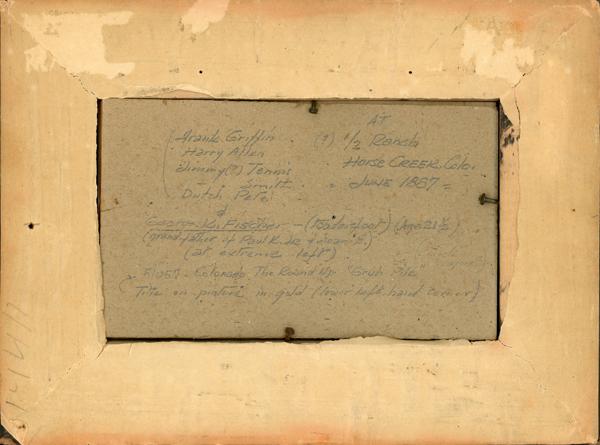 AT
Frank Griffin (?) 1/2 Ranch
Harry Allen HORSE CREEK, Colo.
Jimmy (?) Tennis " JUNE 1887 =
- Smith
Dutch Pete
&
George K. Fischer - (Tenderfoot) (Age 21 1/2)
(grandfather of Paul K.
(at extreme left)
Colorado. The Round Up "Grub Pile
Title on picture in gold (lower left hand corner)